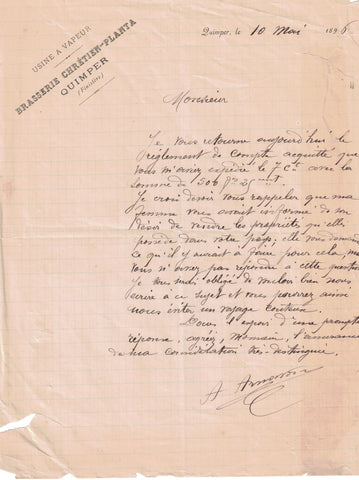 USINE A VAPEUR
BRASSERIE CHRÉTIEN-PLANTA
QUIMPER
(Finistère)
Quimper, le 10 Mai 1896
Monsieur
Je vous retourne aujourd'hui le
Règlement de Compte acquitté que
vous m'avez expédié le 7 Ct avec la
somme de 506 frs
Je crois devoir vous rappeler que ma
femme vous avait informé de son
désir de vendre les propriétés qu'elle
possède dans votre pays; elle vous demandait
ce qu'il y aurait à faire pour cela, mais
vous n'avez pas répondu à cette question
Je vous serai obligé de vouloir bien nous
écrire à ce sujet et vous pourrez ainsi
nous éviter un voyage coûteux.
Dans l'espoir d'une prompte
réponse, agréez, Monsieur, l'assurance
de ma considération très-distinguée.
A